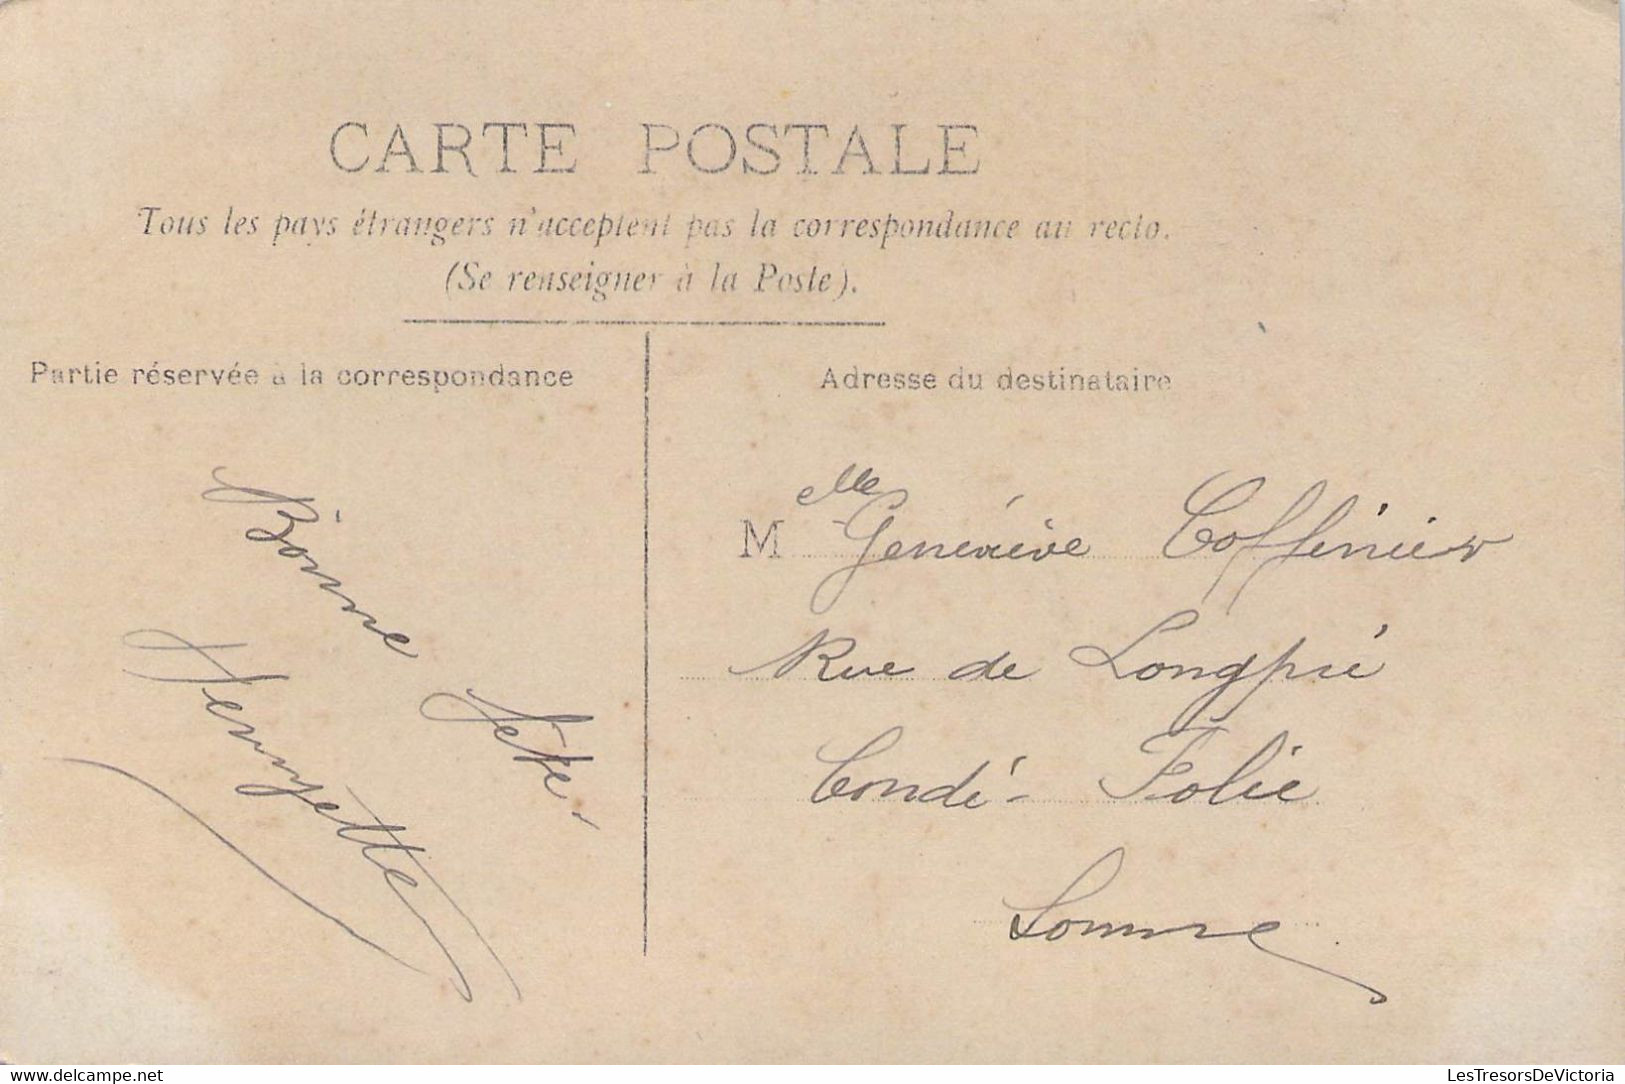 CARTE POSTALE
Tous les pays étrangers n'acceptent pas la correspondance au recto.
(Se renseigner à la Poste).
Partie réservée à la correspondance
Bonne fête
Henryette
Adresse du destinataire
Melle Geneviève Coffinier
Rue de Longpré
Condé-Folie
Somme
delcampe.net
LesTresorsDeVictoria